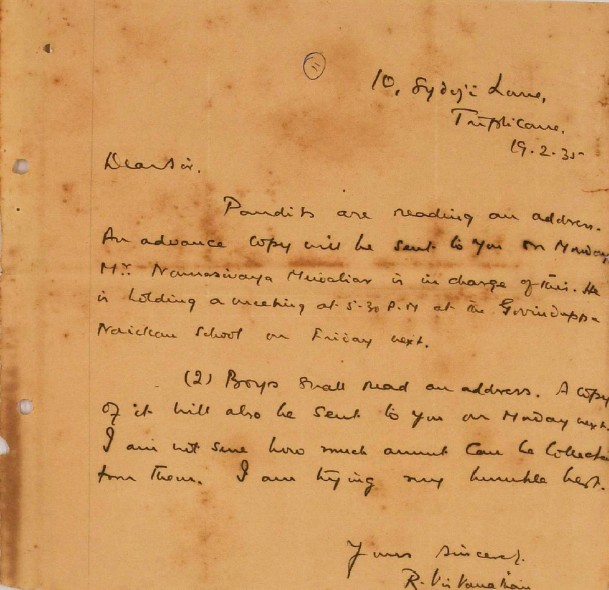 11
10, Sydoji Lane,
Triplicane.
19.2.35
Dear Sir.
Pandits are reading an address.
An advance copy will be sent to you on Monday
Mr. Namasivaya Mudaliar is in charge of this. He
is holding a meeting at 5-30 P.M at the Govindappa
Naickan School on Friday next.
(2) Boys shall read an address. A copy
of it will also be sent to you on Monday next.
I am not sure how much amount can be collected
from them. I am trying my humble best.
Yours Sincerely.
R. Viswanathan